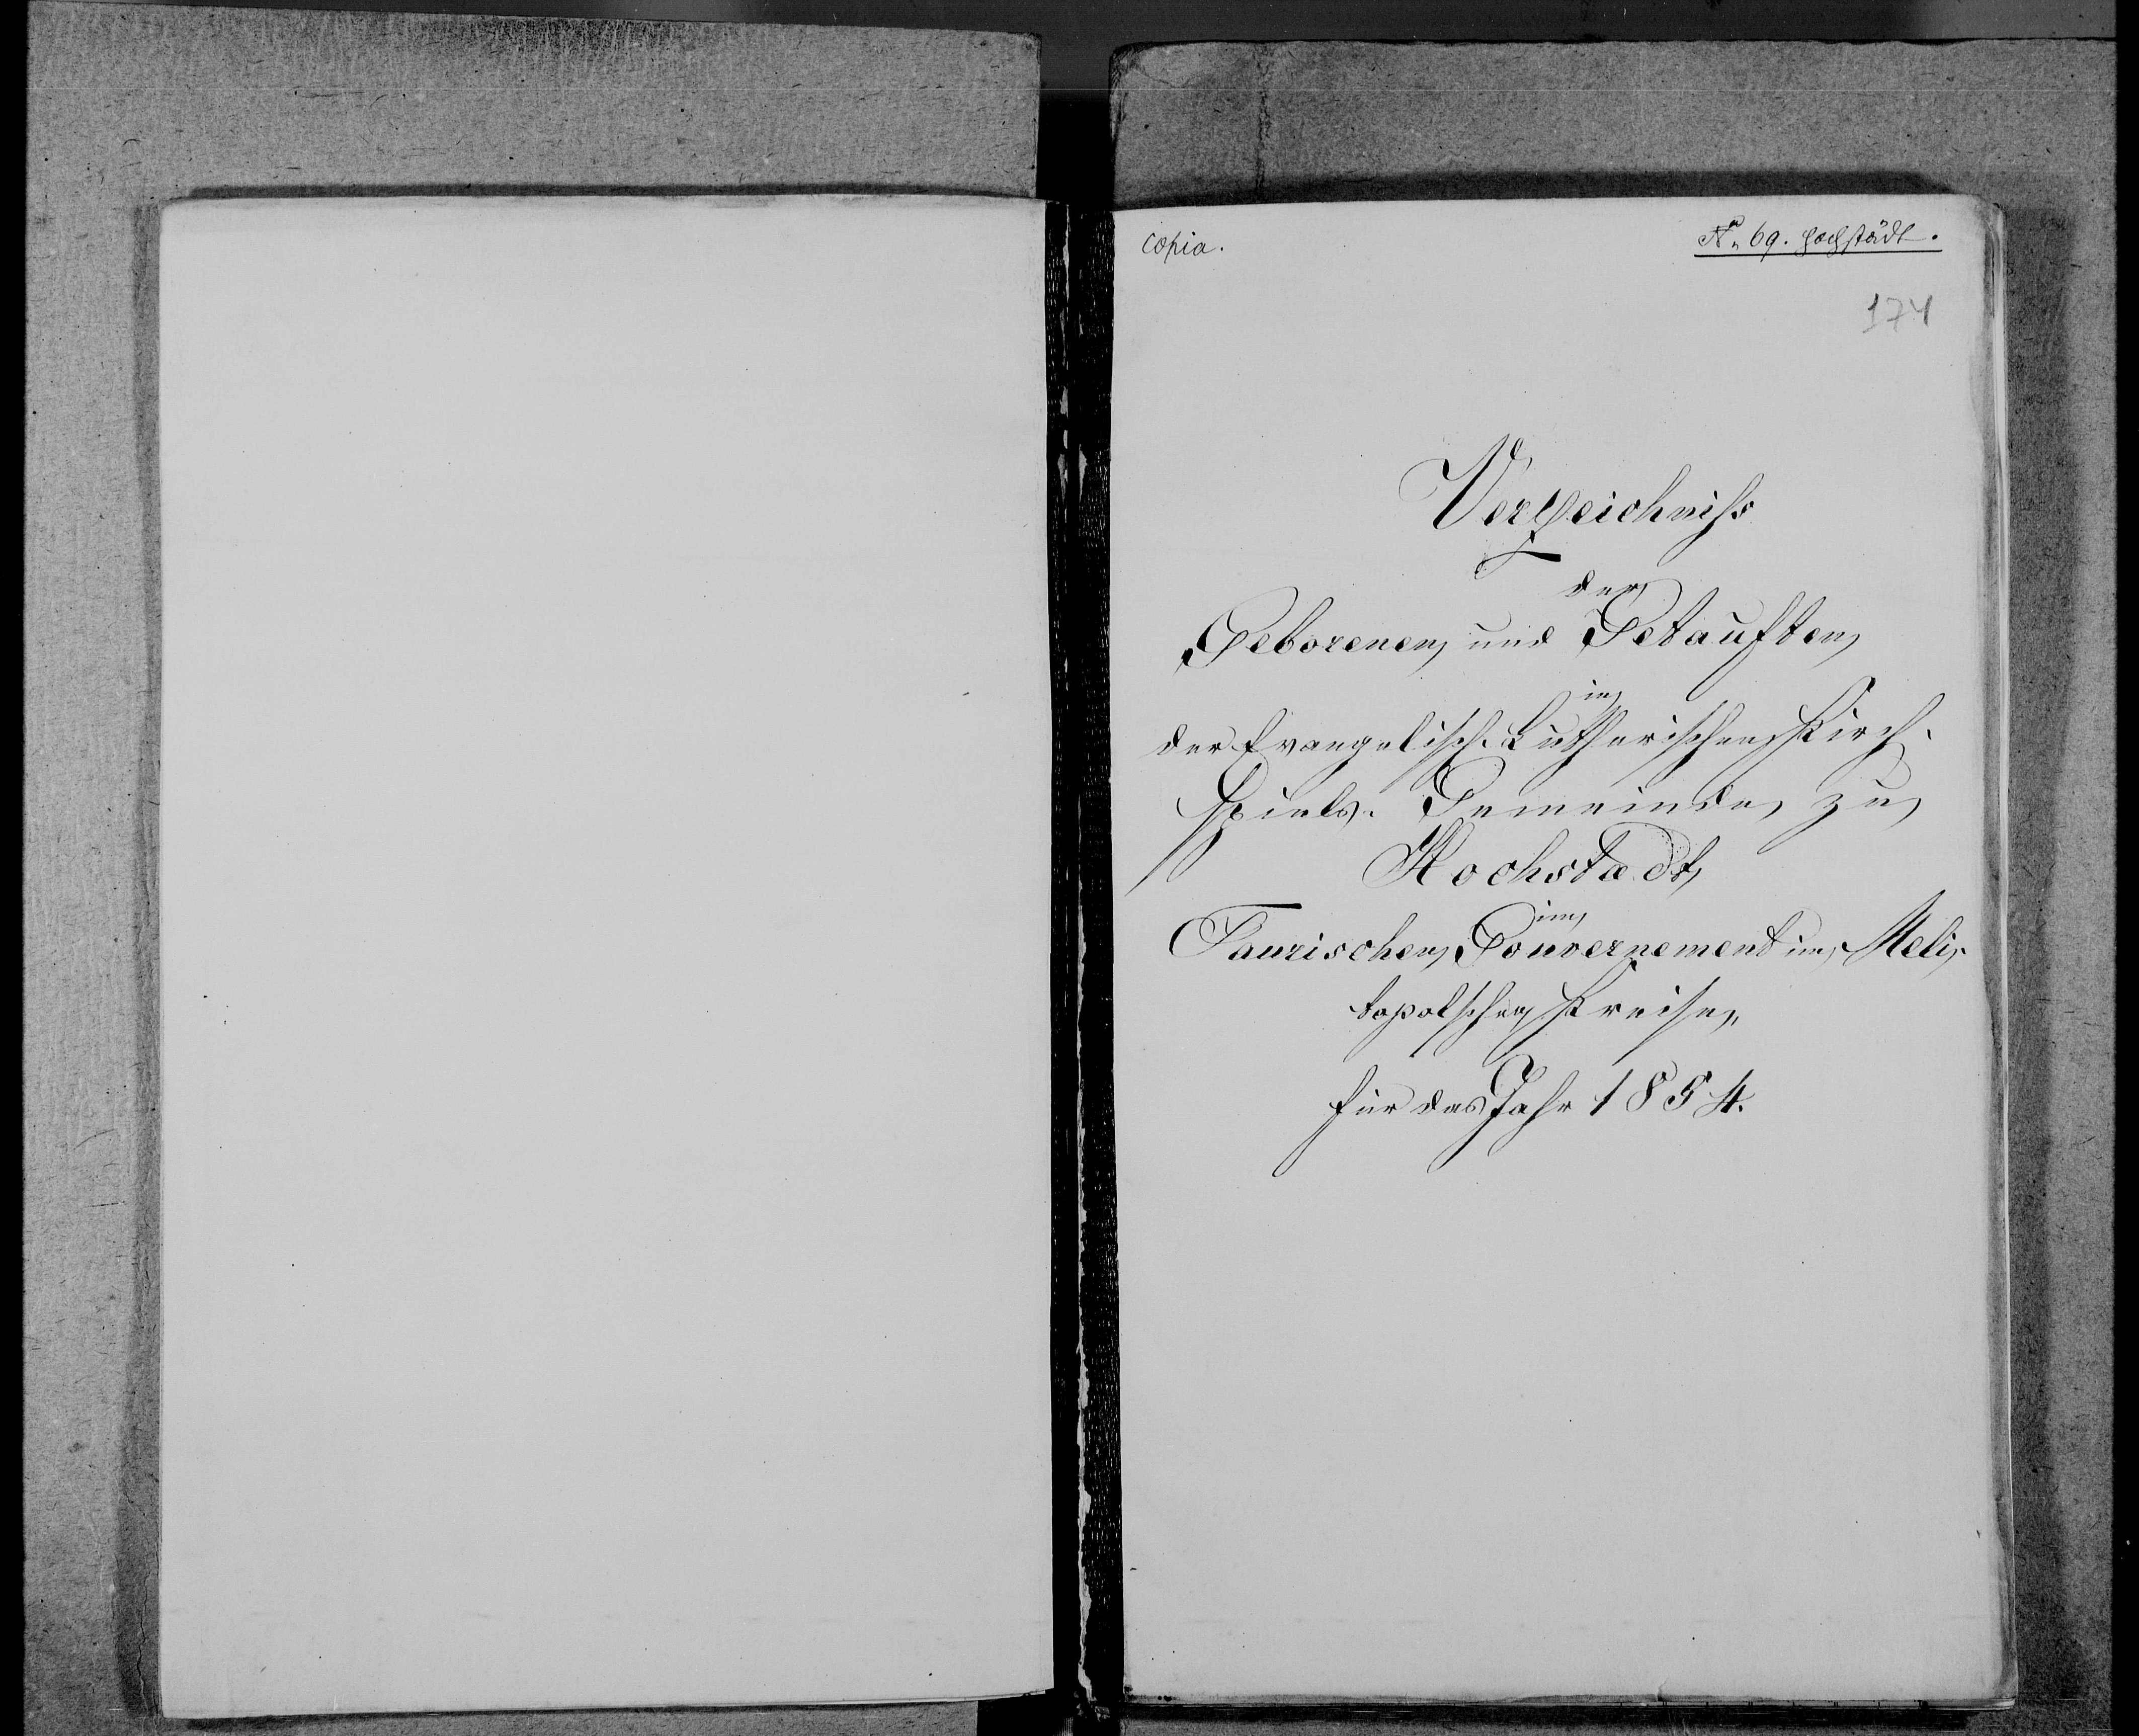 copia.
№ 69. Hochstädt.
174
Verzeichniss
der
Geborenen und Getauften
in
der Evangelisch-Lutherischen Kirch-
spiels-Gemeinde zu
Hochstædt
im
Taurischen Gouvernement im Meli-
topolschen Kreise,
für das Jahr 1854.